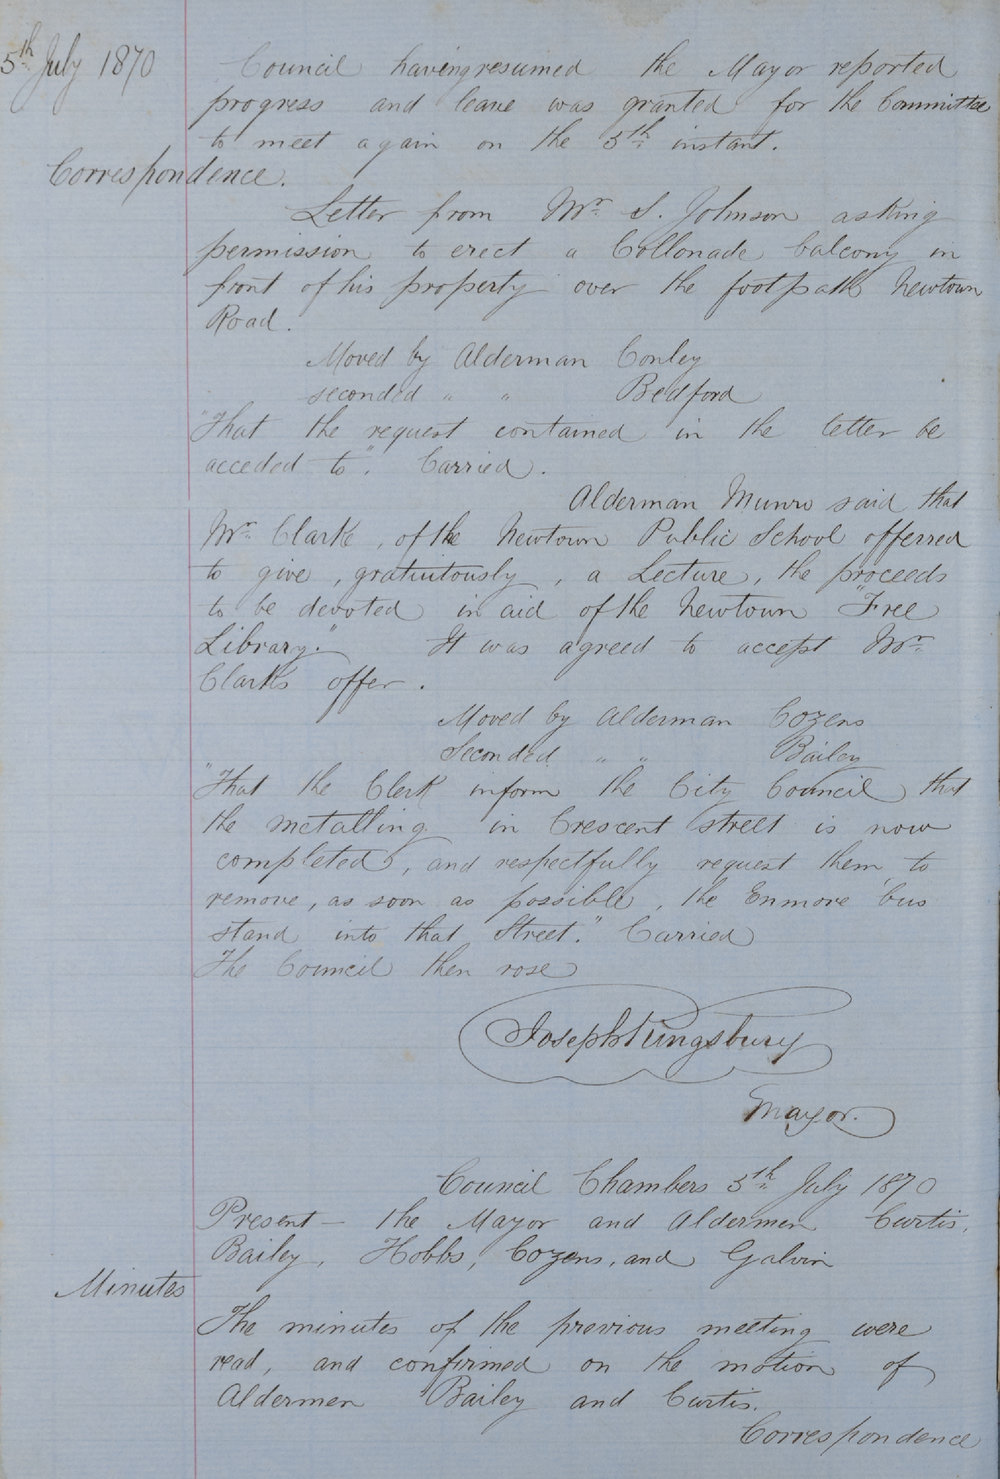 5th July 1870
Council having resumed the Mayor reported
progress and leave was granted for the Committee
to meet again on the 5th instant.
Correspondence.
Letter from Mr. S. Johnson asking
permission to erect a Collonade balcony in
front of his property over the footpath Newtown
Road.
Moved by Alderman Conley
seconded " " Bedford
"That the request contained in the letter be
acceded to". Carried.
Alderman Munro said that
Mr. Clarke, of the Newtown Public School offerred
to give, gratuitously, a Lecture, the proceeds
to be devoted in aid of the Newtown "Free
Library." It was agreed to accept Mr.
Clarks offer.
Moved by Alderman Cozens
Seconded " " Bailey
"That the Clerk inform the City Council that
the metalling in Crescent street is now
completed, and respectfully request them, to
remove, as soon as possible, the Enmore 'bus
stand into that Street." Carried
The Council then rose
Joseph Kingsbury
Mayor.
Council Chambers 5th July 1870
Present - the Mayor and Aldermen Curtis,
Bailey, Hobbs, Cozens, and Galvin
Minutes
The minutes of the previous meeting were
read, and confirmed on the motion of
Aldermen Bailey and Curtis.
Correspondence